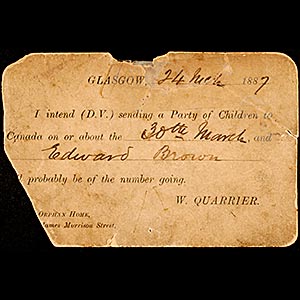 GLASGOW, 24 Mch 1887
I intend (D.V.) sending a Party of Children to
Canada on or about the 30th March, and
Edward Brown
probably be of the number going.
W. QUARRIER.
ORPHAN HOME,
James Morrison Street.